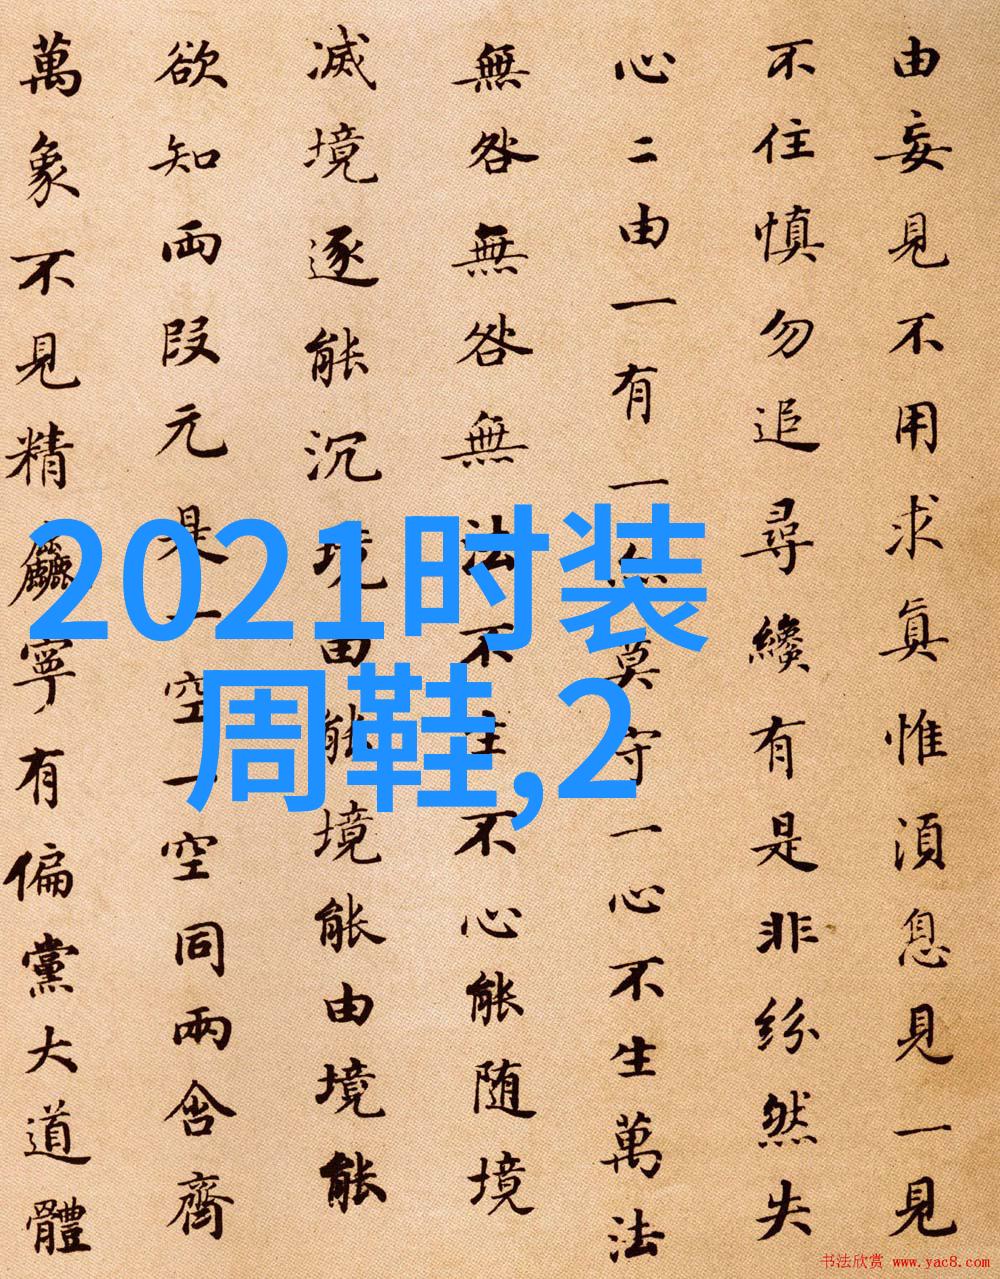 由妄見不用求真惟湏息見一見
不住慎勿追尋纔有是非紛然失
心二由一有一亦莫守一心不生萬法
無咎無咎無法不生不心能随境
滅境逐能沉境由能境能由境能
欲知兩段元是一空一空同兩含齊
萬象不見精麤寧有偏黨大道體
2021时装
周鞋,2
书法欣赏 www.yac8.com